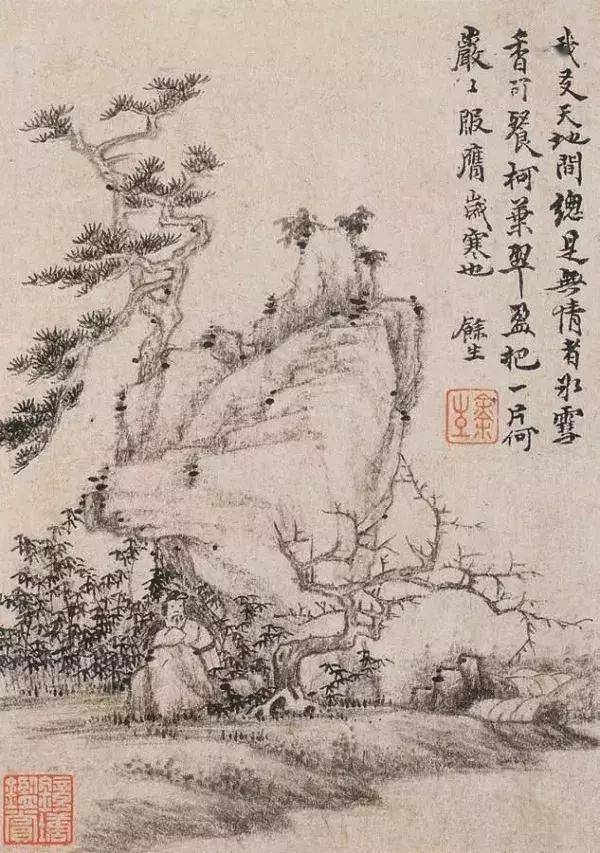 我友天地間總是無情者冰雪
香可餐柯葉翠盈把一片何
嚴〻服膺歲寒也
餘生